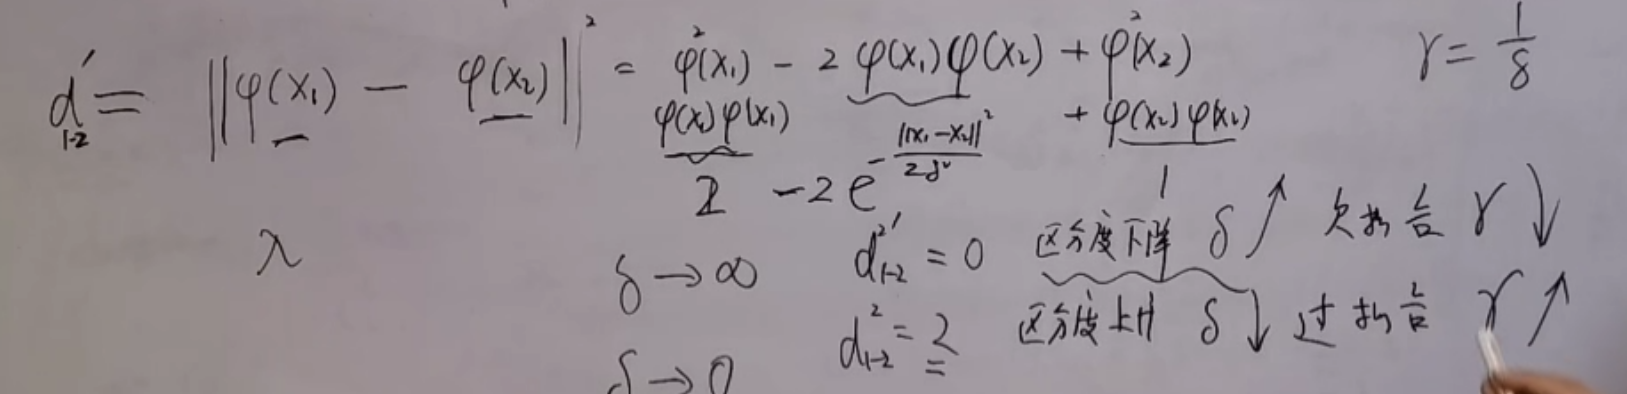 d'₁₋₂ = ||φ(x₁) − φ(x₂)||² = φ²(x₁) − 2φ(x₁)φ(x₂) + φ²(x₂) γ = 1/δ
φ(x₁)φ(x₁) + φ(x₂)φ(x₂)
2 − 2e^(−||x₁−x₂||²/2δ²) 1
λ δ → ∞ d²'₁₋₂ = 0 区分度下降 δ↑ 欠拟合 γ↓
δ → 0 d²₁₋₂ = 2 区分度上升 δ↓ 过拟合 γ↑